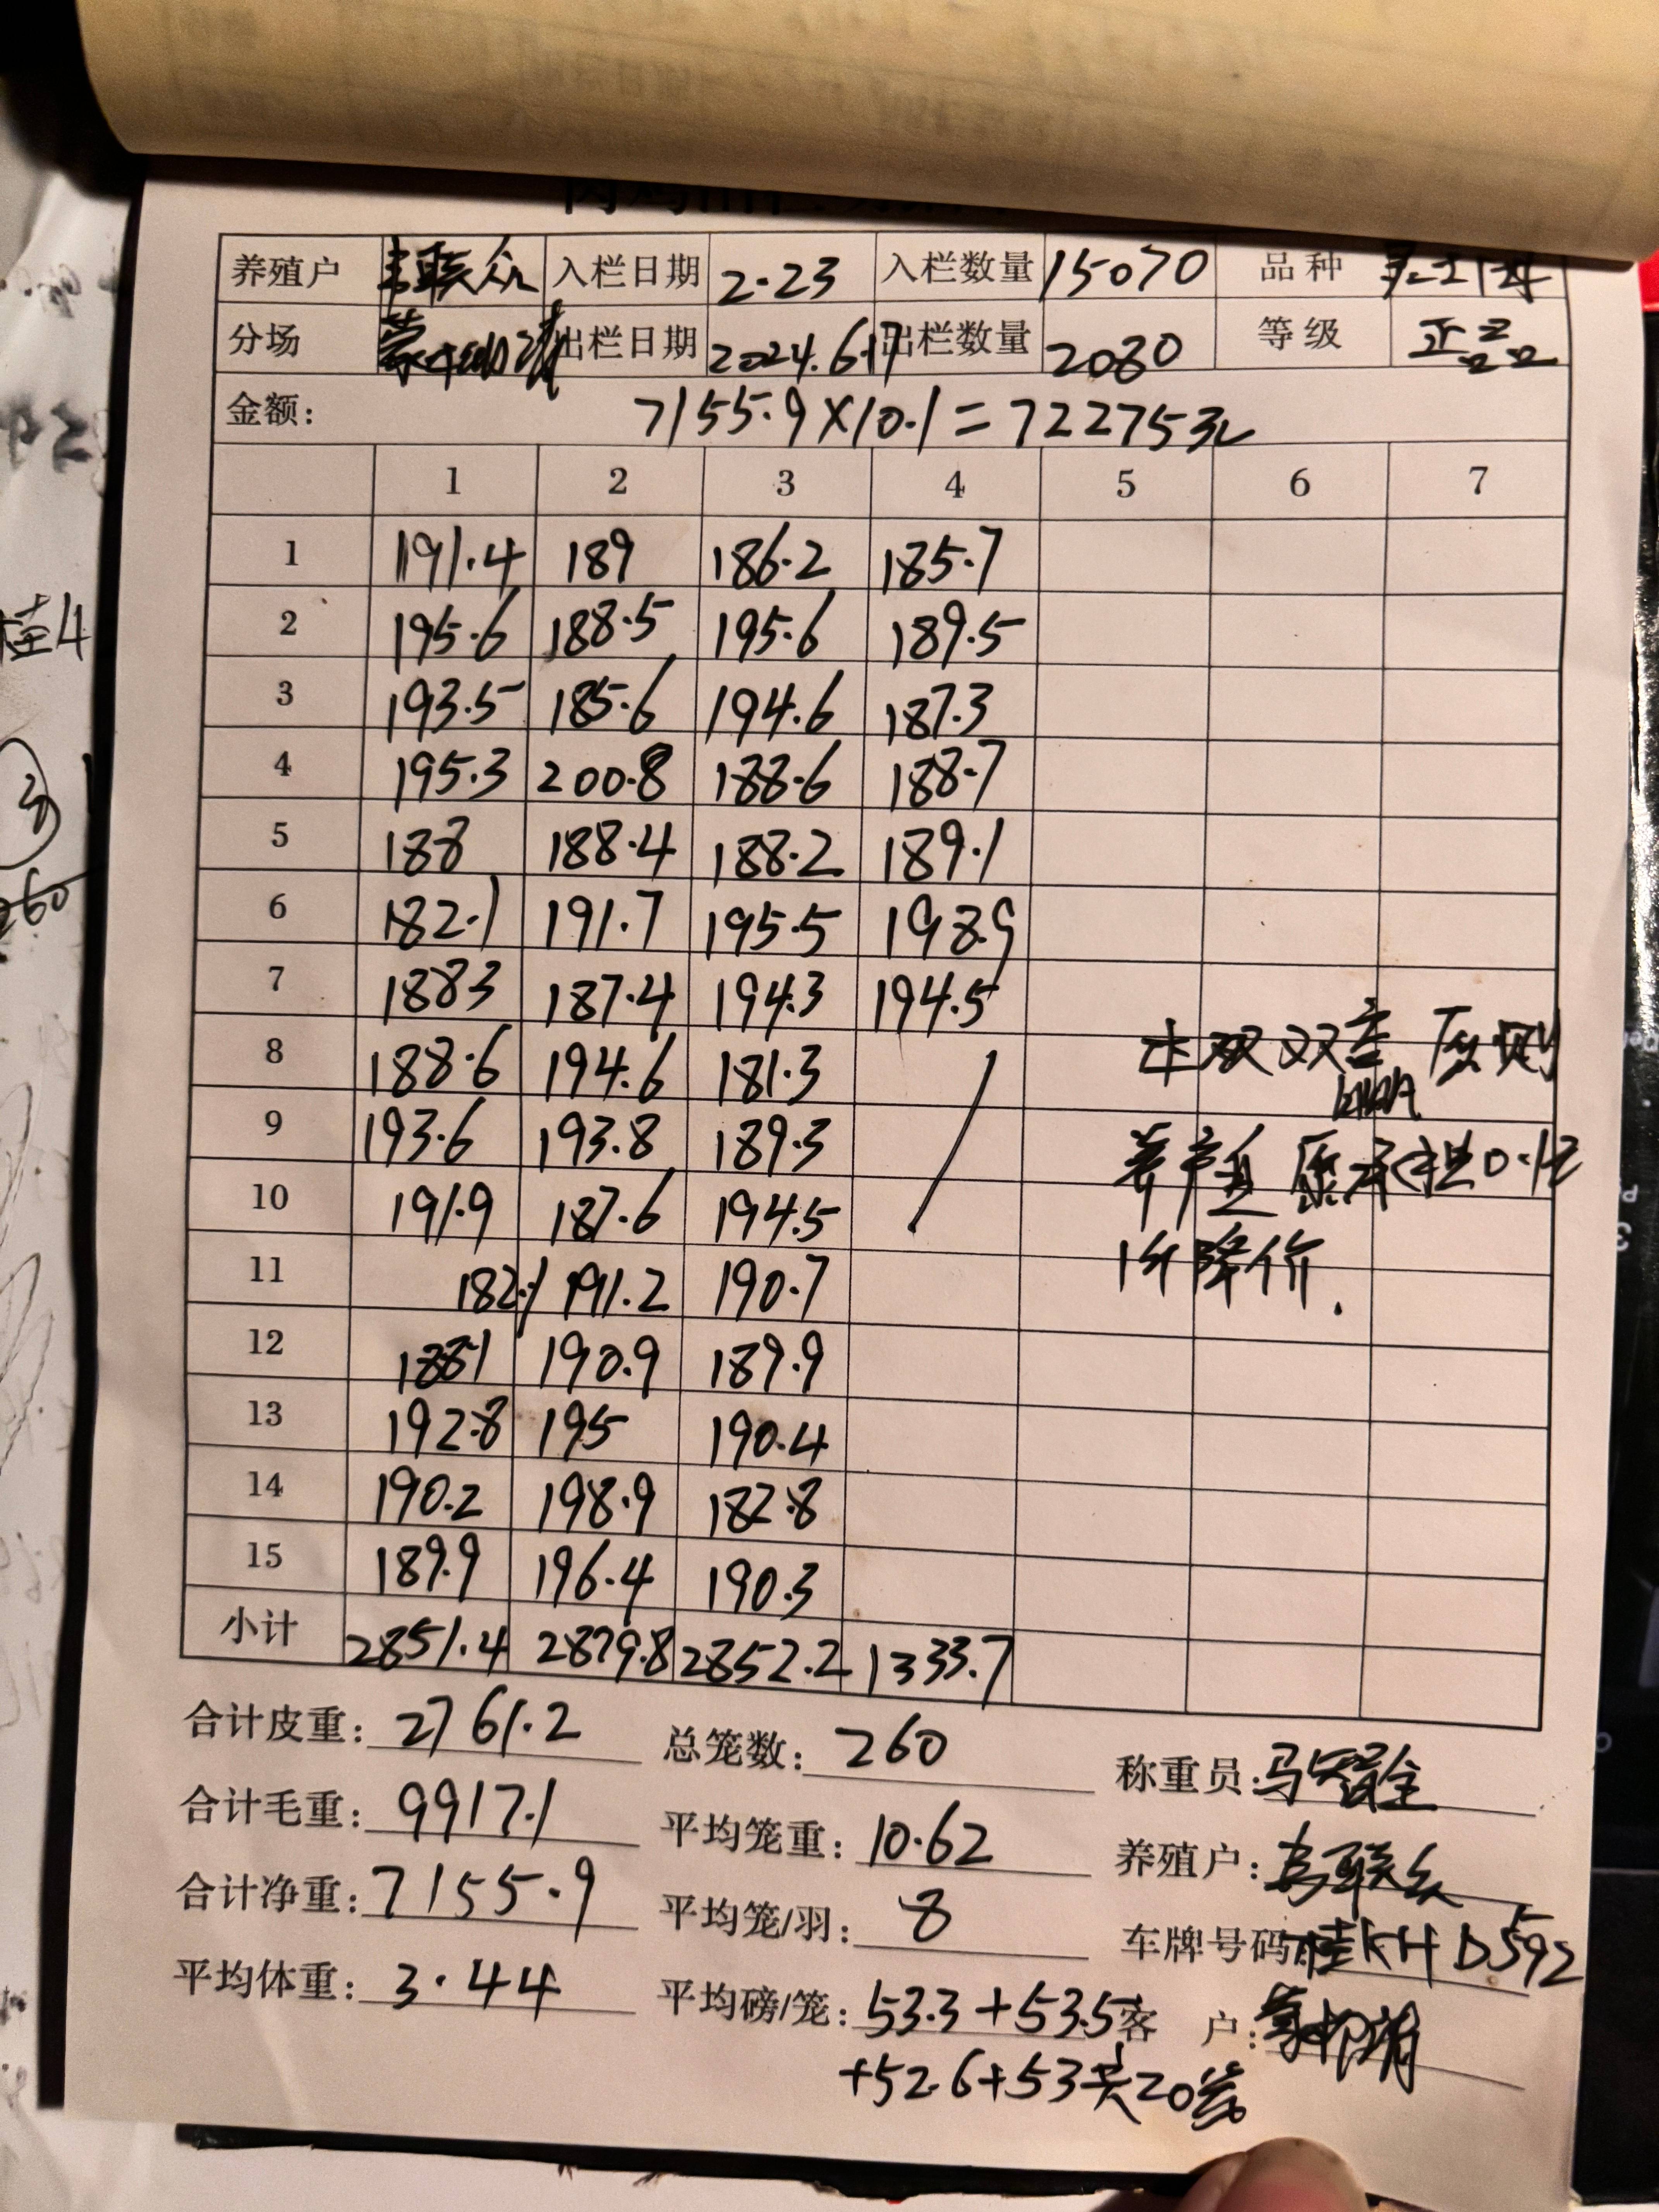 养殖户 联众 入栏日期 2.23 入栏数量 15070 品种
分场 出栏日期 2024.6.17 出栏数量 2080 等级 正品
金额: 7155.9×10.1=72275元
1 2 3 4 5 6 7
1 191.4 189 186.2 185.7
2 195.6 188.5 195.6 189.5
3 193.5 185.6 194.6 187.3
4 195.3 200.8 188.6 188.7
5 188 188.4 188.2 189.1
6 182.1 191.7 195.5 198.9
7 188.3 187.4 194.3 194.5
8 188.6 194.6 181.3
9 193.6 193.8 189.3
10 191.9 187.6 194.5
11 182.1 191.2 190.7
12 188.1 190.9 189.9
13 192.8 195 190.4
14 190.2 198.9 182.8
15 189.9 196.4 190.3
小计 2851.4 2879.8 2852.2 1333.7
双双 原则
养户 愿承担0.1元
1斤降价.
合计皮重: 2761.2 总笼数: 260 称重员: 马
合计毛重: 9917.1 平均笼重: 10.62 养殖户: 联众
合计净重: 7155.9 平均笼/羽: 8 车牌号码: 桂KHD592
平均体重: 3.44 平均磅/笼: 53.3+53.5 客户:
+52.6+53共20笼
桂4
3
260